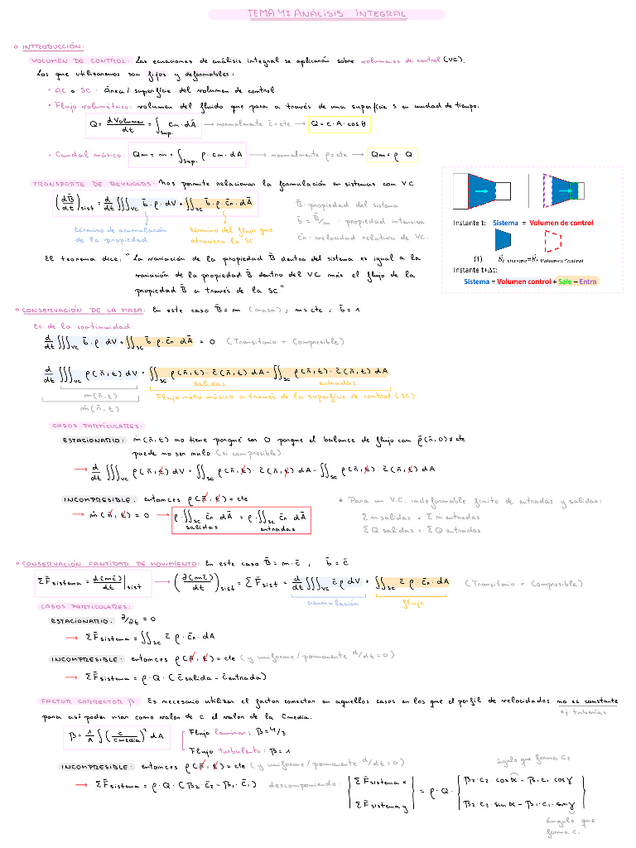 TEMA 4: ANÁLISIS INTEGRAL
INTRODUCCIÓN:
VOLUMEN DE CONTROL: Las ecuaciones de análisis integral se aplicarán sobre volúmenes de control (VC).
Los que utilizaremos son fijos y deformables:
• AC o SC: área / superficie del volumen de control
• Flujo volumétrico: volumen del fluido que pasa a través de una superficie s en unidad de tiempo.
Q = dVolumen/dt = ∫sup. c̄n·dĀ → normalmente c̄ = cte → Q = c·A·cosθ
• Caudal másico: Qm = ṁ = ∫sup. ρ·cn·dA → normalmente ρ = cte → Qm = ρ·Q
TRANSPORTE DE REYNOLDS: Nos permite relacionar la formulación en sistemas con VC
(dB̄/dt)sist = d/dt ∫∫∫vc b̄·ρ·dV + ∫∫sc b̄·ρ·c̄n·dA
B̄: propiedad del sistema
b̄ = B̄/m: propiedad intensiva
c̄n: velocidad relativa de VC.
término de acumulación de la propiedad
término del flujo que atraviesa la SC
El teorema dice: "La variación de la propiedad B̄ dentro del sistema es igual a la
variación de la propiedad B̄ dentro del VC más el flujo de la
propiedad B̄ a través de la SC"
Instante t: Sistema = Volumen de control
(1)
Instante t+Δt:
Sistema = Volumen control + Sale – Entra
CONSERVACIÓN DE LA MASA: En este caso B̄ = m (masa), m = cte, b̄ = 1
Ec de la continuidad:
d/dt ∫∫∫vc b̄·ρ·dV + ∫∫sc b̄·ρ·c̄n·dA = 0 (Transitorio - Compresible)
salidas
entradas
Flujo neto másico a través de la superficie de control (SC)
CASOS PARTICULARES:
ESTACIONARIO: ṁ(x̄,t) no tiene porqué ser 0 porque el balance de flujo con
puede no ser nulo (si compresible).
INCOMPRESIBLE: entonces ρ(x̄,t) = cte
→ ṁ(x̄,t) = 0 → ρ∫∫sc c̄n dĀ = ρ·∫∫sc c̄n dĀ
salidas
entradas
* Para un V.C. indeformable finito de entradas y salidas:
Σ ṁ salidas = Σ ṁ entradas
Σ Q salidas = Σ Q entradas
CONSERVACIÓN CANTIDAD DE MOVIMIENTO: En este caso B̄ = m·c̄, b̄ = c̄
(Transitorio + Compresible)
acumulación
flujo
CASOS PARTICULARES:
ESTACIONARIO: ∂/∂t = 0
→ ΣF̄sistema = ∫∫sc c̄ ρ·c̄n·dA
INCOMPRESIBLE: entonces ρ(x̄,t) = cte (y uniforme/permanente d/dt = 0)
→ ΣF̄sistema = ρ·Q·(c̄salida - c̄entrada)
FACTOR CORRECTOR β: Es necesario utilizar el factor corrector en aquellos casos en los que el perfil de velocidades no es constante
para así poder usar como valor de c el valor de la cmedia.
ej: tuberías
Flujo laminar: β = 4/3
Flujo turbulento: β = 1
INCOMPRESIBLE: entonces ρ(x̄,t) = cte (y uniforme/permanente d/dt = 0)
ángulo que forma c2
→ ΣF̄sistema = ρ·Q·(β2·c̄2 - β1·c̄1) descomponiendo:
ángulo que
forma c1